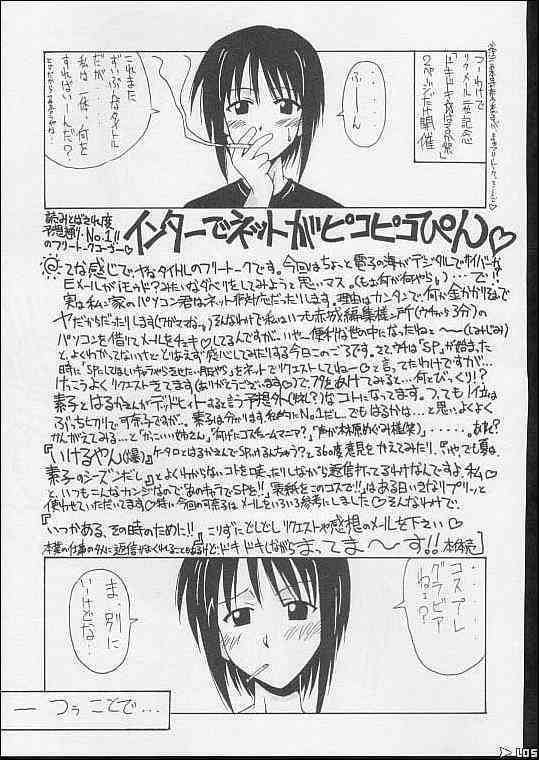 つーわけで
リクメール二冠記念
「ドキドキ女はるか祭」
2ページだけ開催
‥‥‥。
ふーん
これまた
ずいぶんなタイトル
だが‥‥
私は一体、何を
すればいーんだ？
読みとばされ度
予想通りNo.1!!
のフリートークコーナー♡
インターでネットがピコピコぴん♡
てな感じでヤなタイトルのフリートークです。今回はちょっと電子の海がデジタルでサイバーが
Eメールがiモード？みたいなダベりをしてみようと思いマス。(もぉ何が何やら)‥‥で!!
実は私ン家のパソコン君はネット非対応だったりします。理由はカンタンで、何か金かかりそうで
ヤだからだったりします(ワガママねっ)。そんなわけで私はいつも赤城編集様ン所(ウチから3分)の
パソコンを借りてメールをチェキ♡してるんですが、いや～便利な世の中になったねェ～～(しみじみ)
と、よくわかってないけどとりあえず感心してみたりする今日このごろです。さて、ウチは「SP」が始まった
時に「SPにしてほしいキャラやらさせたい
をネットでリクエストしてね♡と言ってたわけですが、
けっこうよくリクエストきてます。(ありがとうございます♡)でフタをあけてみると‥‥何とびっくり!?
素子とはるかさんがデッドヒートすると言う予想外
なコトになってます。つっても1位は
ぶっちぎりで可奈子ですが‥。素子は分かります。私的にNo.1だし。でもはるかは‥‥と思い、よくよく
かんがえてみる…と「かっこいいおねえさん」「何げにコスモゲームマニア？」「声が林原めぐみ様(笑)」‥‥‥‥。あれ？
『いけるやん(爆)』ケータロとはるかさんでSPいけるんちゃう？と360度意見をかえてみたり、『ヤでも夏は、
素子のシーズンだし』とよくわからないコトを口走ったりしながら返信打ってるわけなんですよ、私♡
と、いつもこんなカンジなので「あのキャラでSPを!!」「表紙をこのコスで!!」はある日いきなりプリッと
使わせていただいてます♡特に今回の可奈子はメールをいろいろ参考にしました♡そんなわけで、
『いつかある、その時のために!!』こりずにどしどしリクエストや感想のメールを下さい♡
本業の仕事のタメに返信がおくれることもあるけど、ドキドキしながらまってま～～す!!
コスプレ
グラビア
ねェ？
‥‥。
ま、別に
いいけどな‥
ー つぅことで…
105